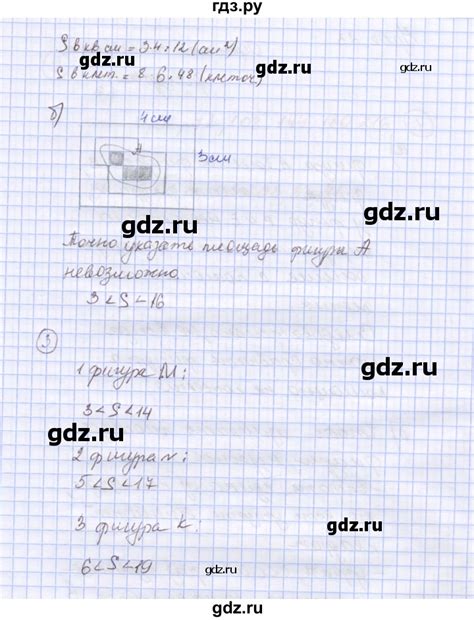 гдз.ру
S в кв см = 3·4 = 12 (см²)
S в клет. = 8·6 = 48 (клеточ)
б)
4 см
А
3 см
gdz.ru
Точно указать площадь фигуры А
невозможно.
gdz.ru
3 < S < 16
3
gdz.ru
1 фигура М:
gdz.ru
3 < S < 14
gdz.ru
2 фигура N:
5 < S < 17
gdz.ru
3 фигура К:
6 < S < 19
gdz.ru
gdz.ru